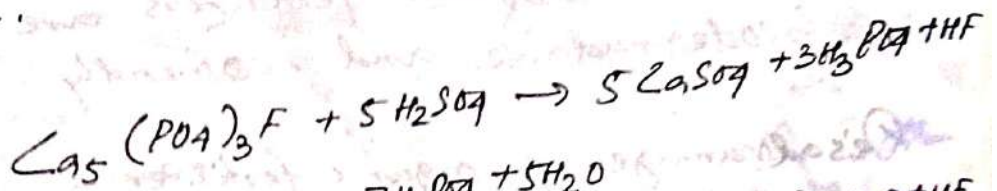 Ca5 (PO4)3F + 5H2SO4 → 5CaSO4 + 3H3PO4 + HF
PO4 + 5H2O
+ HF